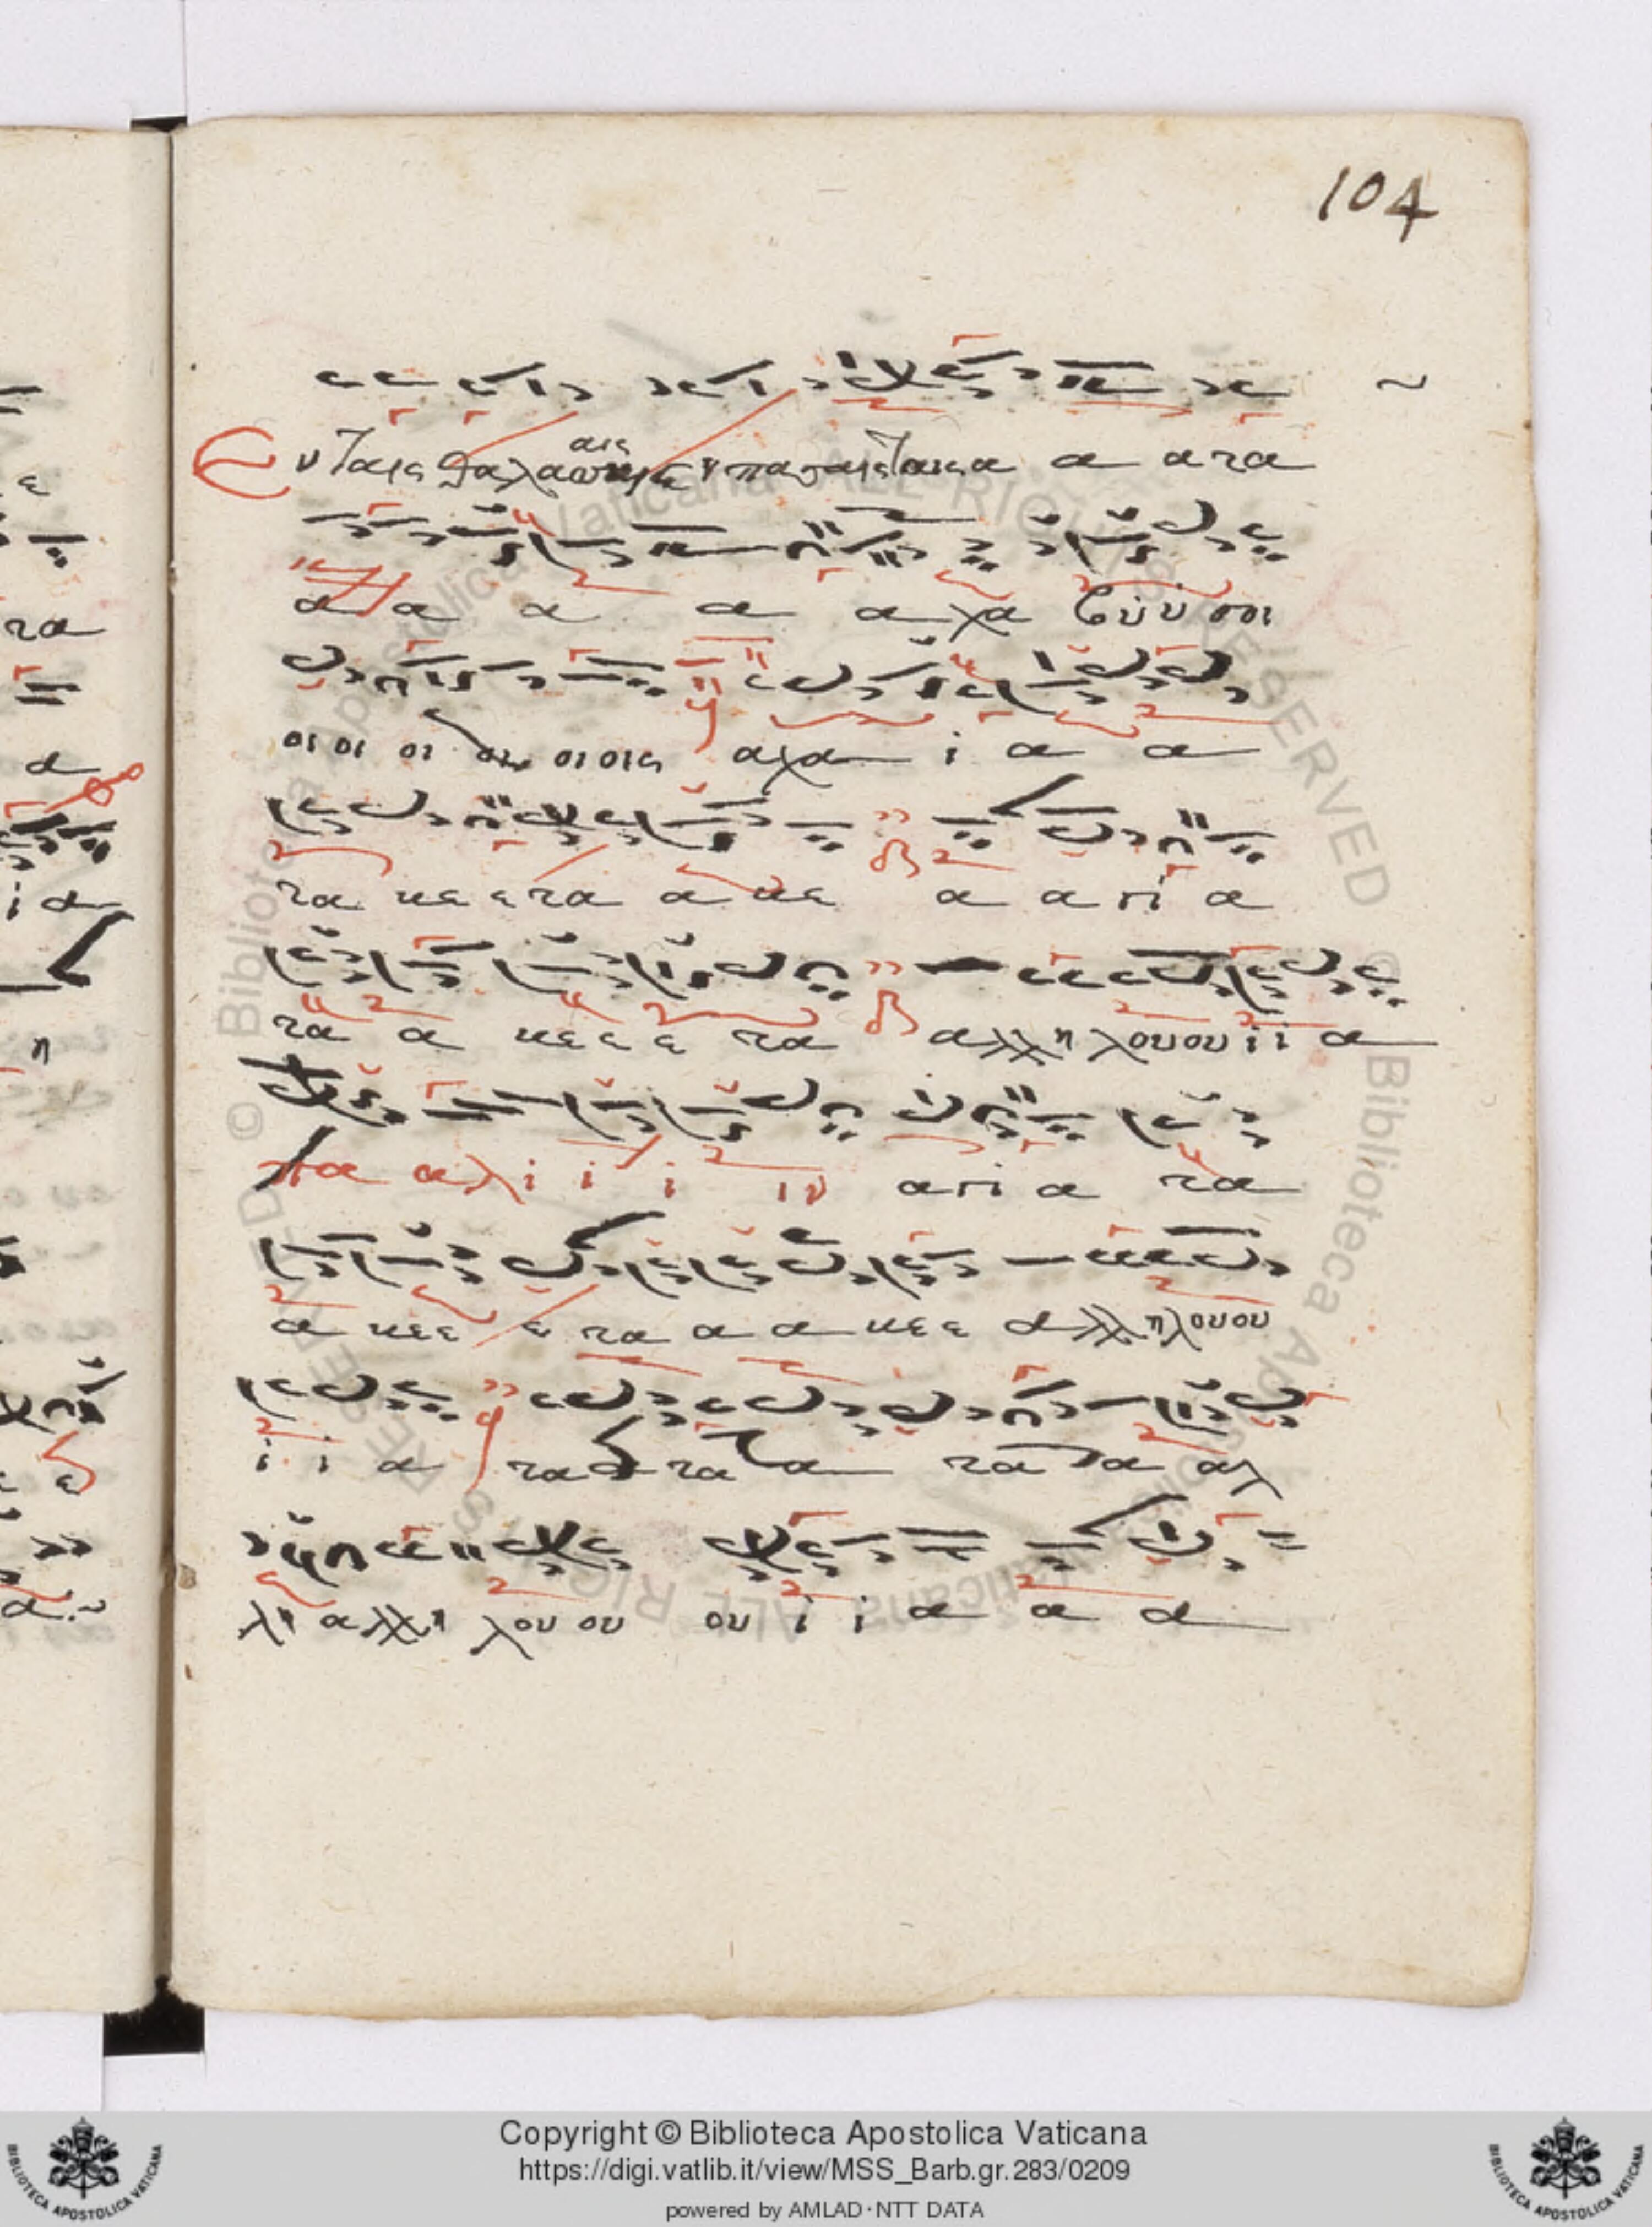 104
Εν ταις θαλασσαις κ πασαις ταις α α α τα
α α α α α χα βυ υ σσι
οι οι οι οι οι οις αχα ι α α
τα κε ε τα α κε α α γι α
τα α κε ε ε τα αλληλουου ι ι α
πα αλι ι ι ι ιν α γι α τα
α κε ε ε τα α α κε ε αλληλουου
ι ι α τα α τα α τα α αλ
λη αλλη λου ου ου ι ι α α α
ρα
α
ι α
η
Copyright © Biblioteca Apostolica Vaticana
https://digi.vatlib.it/view/MSS_Barb.gr.283/0209
powered by AMLAD · NTT DATA